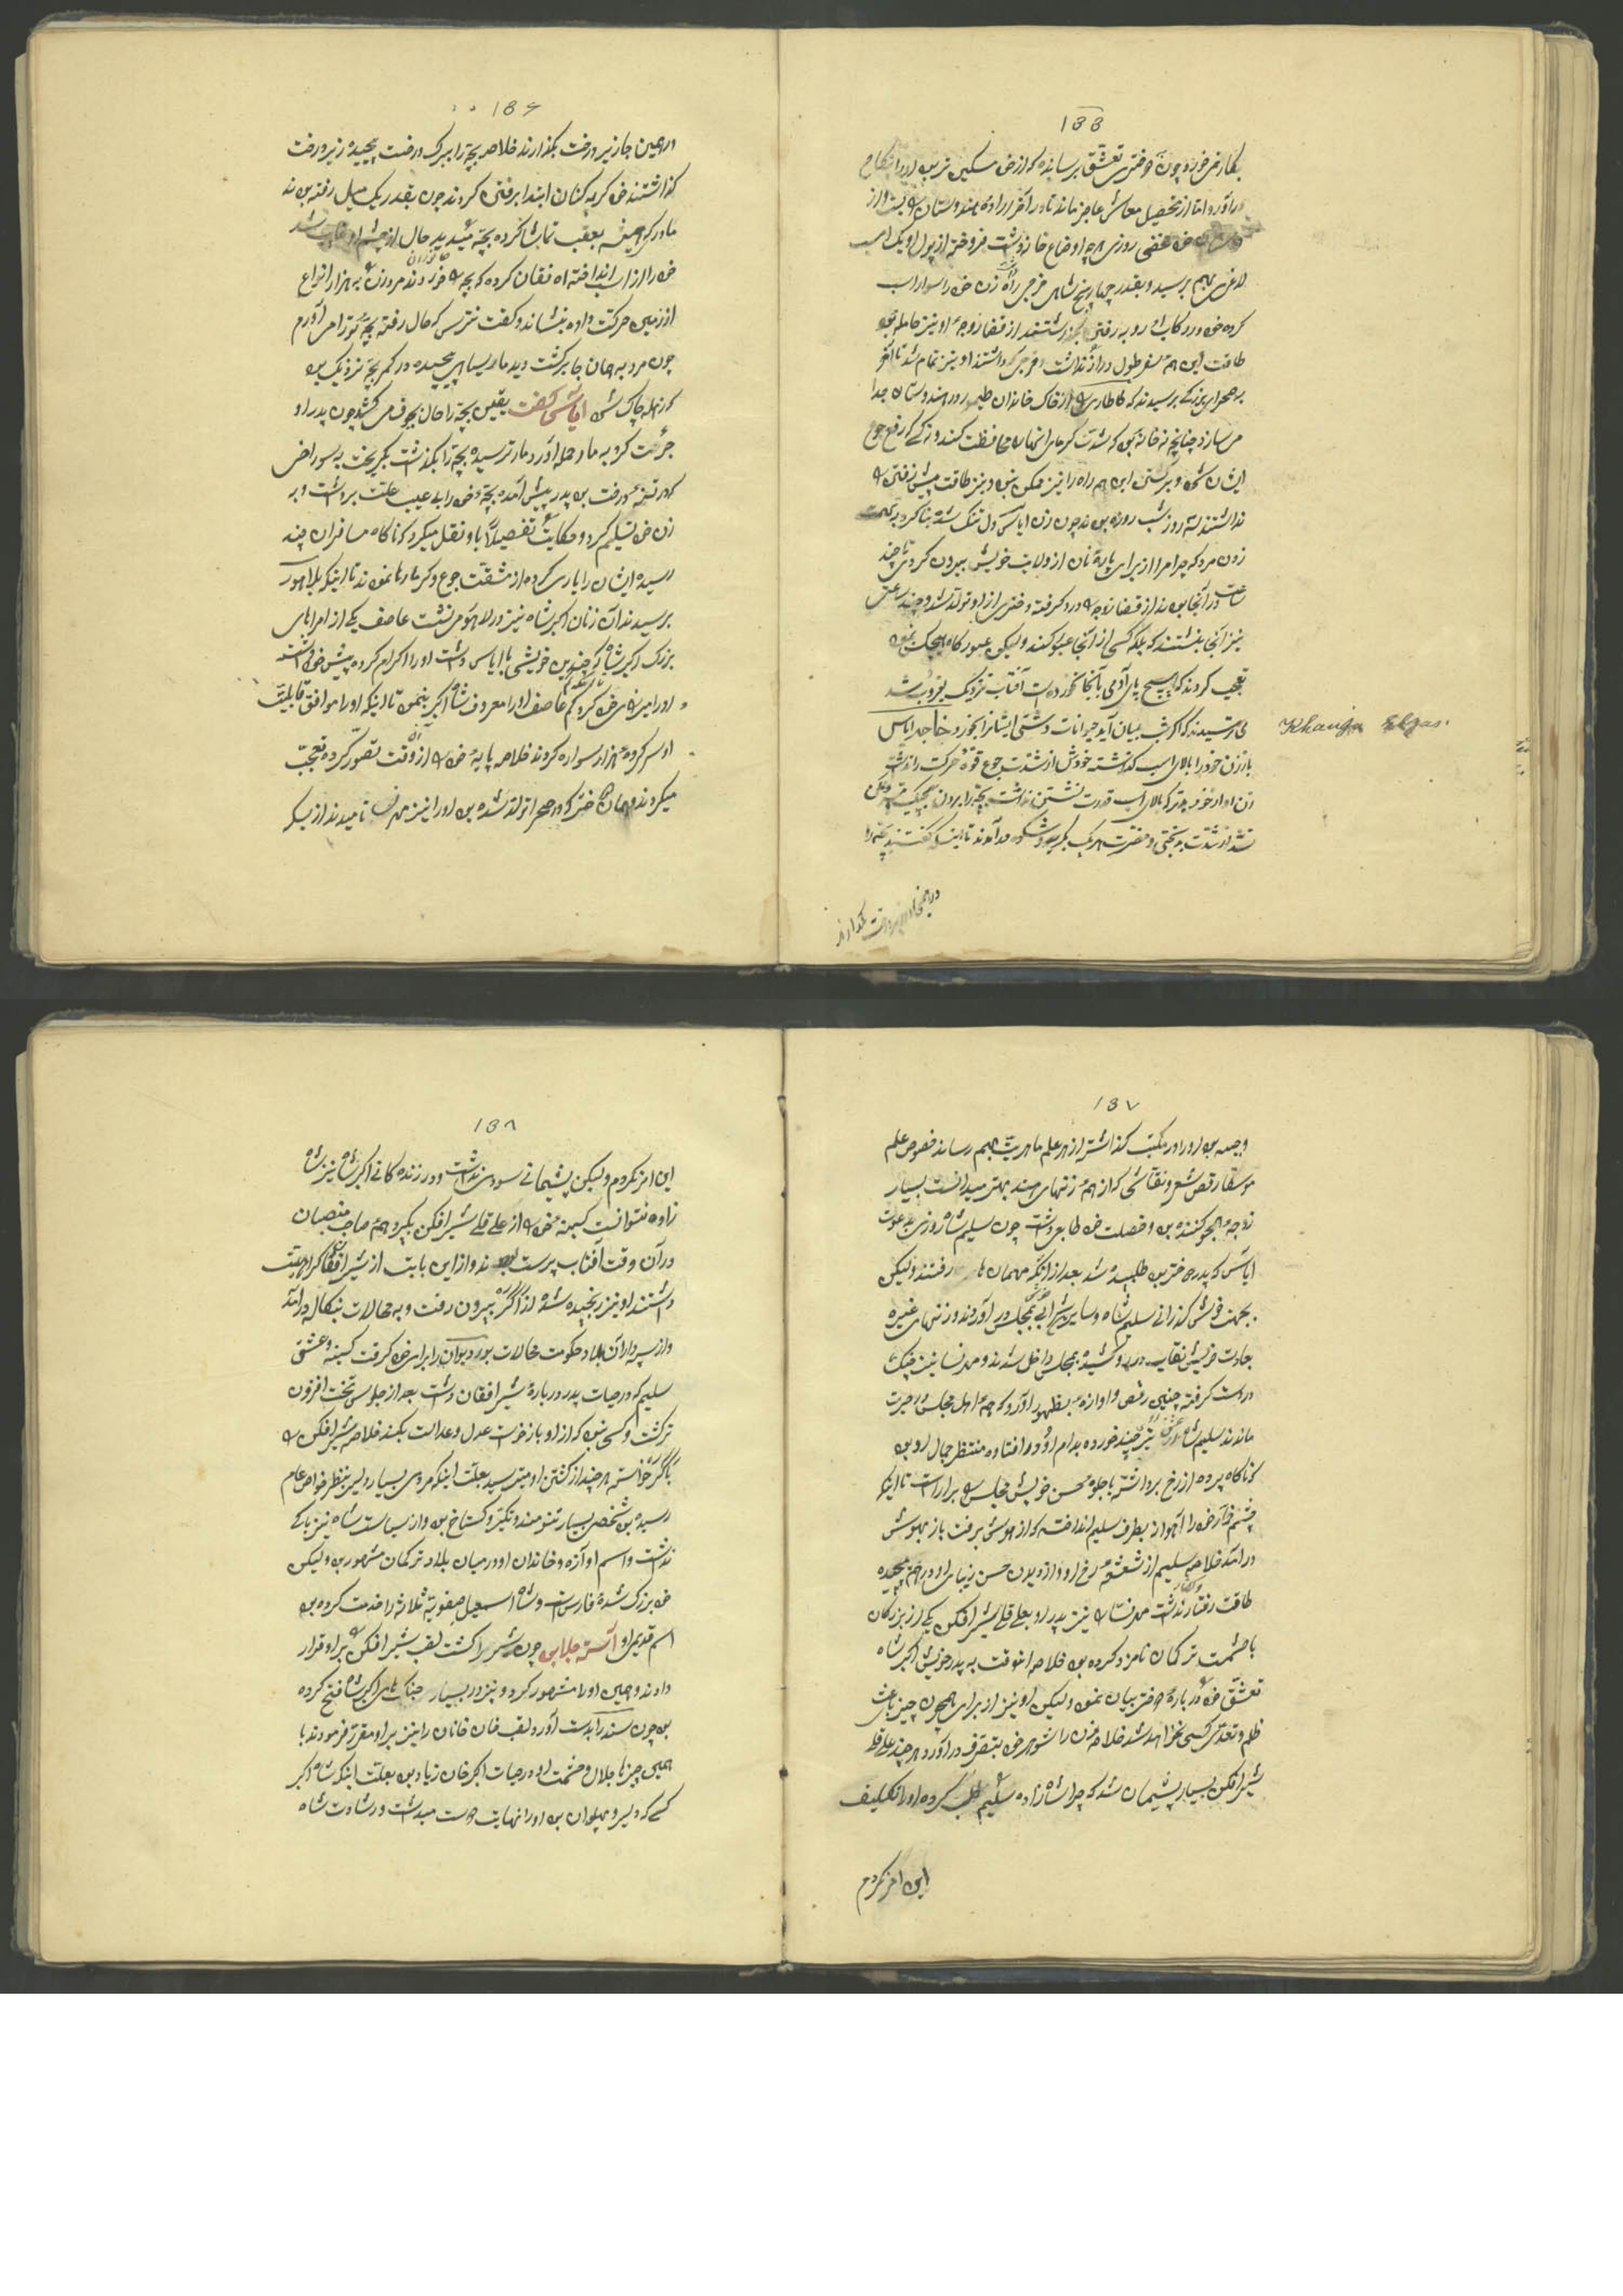 188
بکار می خورد چون دختری تعشق برسانده که از خود مسکین تر بود او را نکاح
در آورد اما از تحصیل معاش عاجز مانده تا در آخر اراده هندوستان بست و از
خود مخفی روزی هر چه اوضاع خانه داشت فروخته از پول او یک اسب
لاغری بهم برسید و بقدر چهار پنج شاهی خرجی راه زن خود را سوار اسب
کرده خود در رکاب او رو به رفتن گذاشتند از قضا زوجه او نیز حامله بود
طاقت این هم سفر طول دراز نداشت خرجی که داشتند او نیز تمام شد تا آخر
به صحرای بزرگی برسیدند که تاتاری را از خاک خاندان طیمور در هندوستان جدا
می سازد چنانچه نه خانه بود که شدت گرما ایشان را محافظت کنند و نه کسی که رفع جوع
ایشان شود و برگشتن این هم راه را نیز ممکن نبود و نیز طاقت پیش رفتن را
نداشتند سه روز شب روزه بودند چون زن ایاس دل تنگ شده بنا کرد به تهمت
زدن مرد که چرا مرا از برای پاره نان از ولایت خویش بیرون کردی تا چند
ساعت در آنجا بودند از قضا زوجه را درد گرفته دختری از او تولد شد و چند ساعتی
نیز آنجا بنشستند که بلکه کسی از آنجا عبور کند ولیکن عبورگاه هیچکس نبود
تعجب کردند که هیچ پای آدمی بآنجا نخورده است آفتاب نزدیک بغروب شد
می ترسیدند که اگر شب بمیان آید حیوانات دشتی ایشانرا بخورد خواجه ایاس
Khauja Elyas.
باز زن خود را بالای اسب گذاشته خودش از شدت جوع قوه حرکت را نداشت
زن او از خود بدتر که بالای اسب قدرت نشستن نداشت بچه را بردن هیچیک ممکن
نشد از شدت بدبختی و مضرت هر یک بگریه و شکوه در آمدند تا اینکه گفتند بچه را
در همین جا زیر درخت بگذارند
186
در همین جا زیر درخت بگذارند خلاصه بچه را ببرگ درخت پیچیده زیر درخت
گذاشتند خود گریه کنان ابتدا برفتن کردند چون بقدر یک میل رفته بودند
مادرکه همیشه بعقب تماشا کرده بچه میدید حال از چشم او غایب شد
خود را از اسب انداخته آه فغان کرده که بچه را خوردند مرد زن را به هزار انواع
از زمین حرکت داده بنشاند و گفت نترس که حال رفته بچه تو را می آورم
چون مرد به همان جا برگشت دید مار سیاهی پیچیده در کمر بچه نزدیک بود
که زهله چاک شود ایاس گفت یقین بچه را حال بجوف می کشد چون پدر او
جرئت کرد به مار حمله آورد مار ترسیده بچه را بگذاشت بگریخت به سوراخی
که در تنه درخت بود پدر پیش آمده بچه خود را بی عیب علت برداشت و بر
زن خود تسلیم کرد و حکایت تفصیلاً باو نقل میکرد که ناگاه مسافران چند
رسیده ایشان را یاری کرده از مشقت جوع و گرما رها نمودند تا اینکه بلاهور
برسیدند آن زمان اکبر شاه نیز در لاهور می نشست عاصف یکی از امراهای
بزرگ اکبر شاه که چندین خویشی با ایاس داشت او را اکرام کرده پیش خود داشت
او را میرزای خود کرد کم کم عاصف او را معروف شاه اکبر بنمود تا اینکه او را موافق قابلیت
او سر کرده هزار سواره کردند خلاصه پایه خود را از آن وقت تصور کرده تعجب
میکردند و همان دختر که در صحرا تولد شده بود او را نیز مهرنسا نامیدند از بس که
187
وجیهه بود او را در مکتب گذاشته از هر علم ماهریت بهم رساند خصوص علم
موسیقار رقص شعر و نقاشی که از همه زنهای هند بهتر میدانست بسیار
زوجه هجو کننده بود و خصلت خود طابع داشت چون سلیم شاه روزی بدعوت
ایاس که پدر دختر بود طلبیده شد بعد از آنکه مهمان ها رفتند ولیکن
بجهت خوش گذرانی سلیم شاه و سایرین شراب بمجلس در آوردند و زنهای غیره
بعادت خویش نقاب در رو کشیده بمجلس داخل شدند و مهرنسا نیز چنگ
در دست گرفته چنین رقص و آوازه بظهور آورد که همه اهل مجلس در حیرت
ماندند سلیم شاه نیز چند خورده بدام او در افتاده منتظر جمال او بود
که ناگاه پرده از رخ برداشته با جلوه حسن خویش مجلس را برآراست تا اینکه
چشم خود را آهواز بطرف سلیم انداخته که از هوش برفت باز بهوش
در آمد خلاصه سلیم از شعشعه رخ او و آوازه بدن حسن زیبای او در هم پیچیده
طاقت رفتار نداشت مهرنسا را نیز پدر او بعلی قلی شیر افکن یکی از بزرگان
با حشمت ترکمان نامزد کرده بود خلاصه آنوقت به پدر خویش اکبر شاه
تعشق خود در باره دختر بیان نمود ولیکن او نیز از برای همچون چیز باعث
ظلم و تعدی کسی نخواهد شد خلاصه زن را شوهر خود بتصرف در آورد هر چند علی قلی
شیر افکن بسیار پشیمان شد که چرا شاه زاده سلیم را طلب کرده او را تکلیف
این امر نکردم
188
این امر نکردم ولیکن پشیمانی سودی نداشت و در زنده گانی اکبر شاه نیز شاه
زاده نتوانست کینه خود را از علی قلی شیر افکن بگیرد همه صاحب منصبان
در آن وقت آفتاب پرست بودند و از این بابت از شیر افکن اکراهیت
داشتند او نیز رنجیده شده از اگره بیرون رفت و به محالات بنگاله در آمد
و از سپهداران بلاد حکومت محالات بوردیوان را برای خود گرفت کینه و عشق
سلیم که در حیات پدر در باره شیر افغان داشت بعد از جلوس تخت افزون
تر گشت و کسی نبود که از او بازخواست عدل و عدالت بکند خلاصه شیر افکن را
باگره خواسته هر چند از کشتن او میترسید بعلت اینکه مردی بسیار دلیر بنظر خواص عام
رسیده بود شخصی بسیار تنومند و تکبر و گستاخ بود و از سیاست شاه نیز باکی
نداشت و اسم او آزه و خاندان او در میان بلاد ترکمان مشهور بود ولیکن
خود بزرگ شده فارس است و شاه اسمعیل صفویه ثلاثه را خدمت کرده بود
اسم قدیمی او آسته جلابی چون شیر را کشت لقب شیر افکن را بر او قرار
دادند و همین او را مشهور کرد و نیز در بسیار جنگ های اکبر شاه فتح کرده
بود چون سند را بدست آورد لقب خان خانان را نیز بر او مقرر فرمودند با
همین چیزها جلال و حشمت او در حیات اکبر خان زیاد بود بعلت اینکه شاه اکبر
کسی که دلیر و پهلوان بود او را نهایت دوست میداشت و رشادت شاه